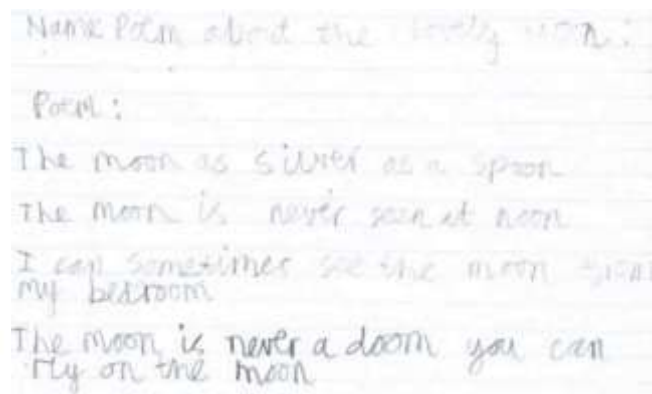 Name Poem about the lovely moon:
Poem:
The moon as silver as a spoon
The moon is never seen at noon
I can sometimes see the moon from
my bedroom
The moon is never a doom you can
rly on the moon